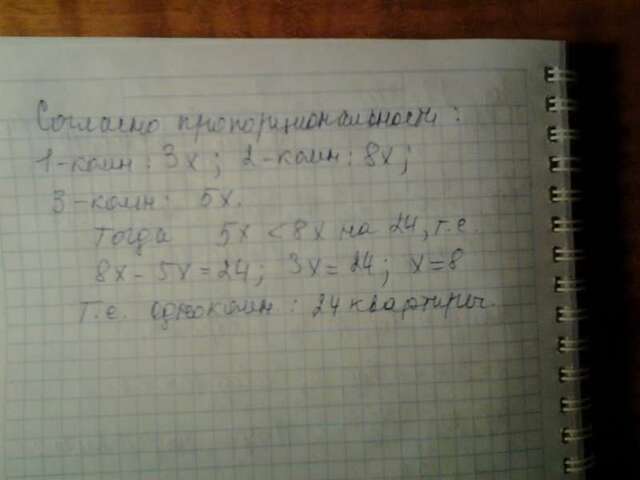 Согласно пропорциональности:
1-комн: 3х; 2-комн: 8х;
3-комн: 5х.
Тогда 5х < 8х на 24, т.е.
8х - 5х = 24; 3х = 24; х = 8
Т.е. однокомн: 24 квартиры.